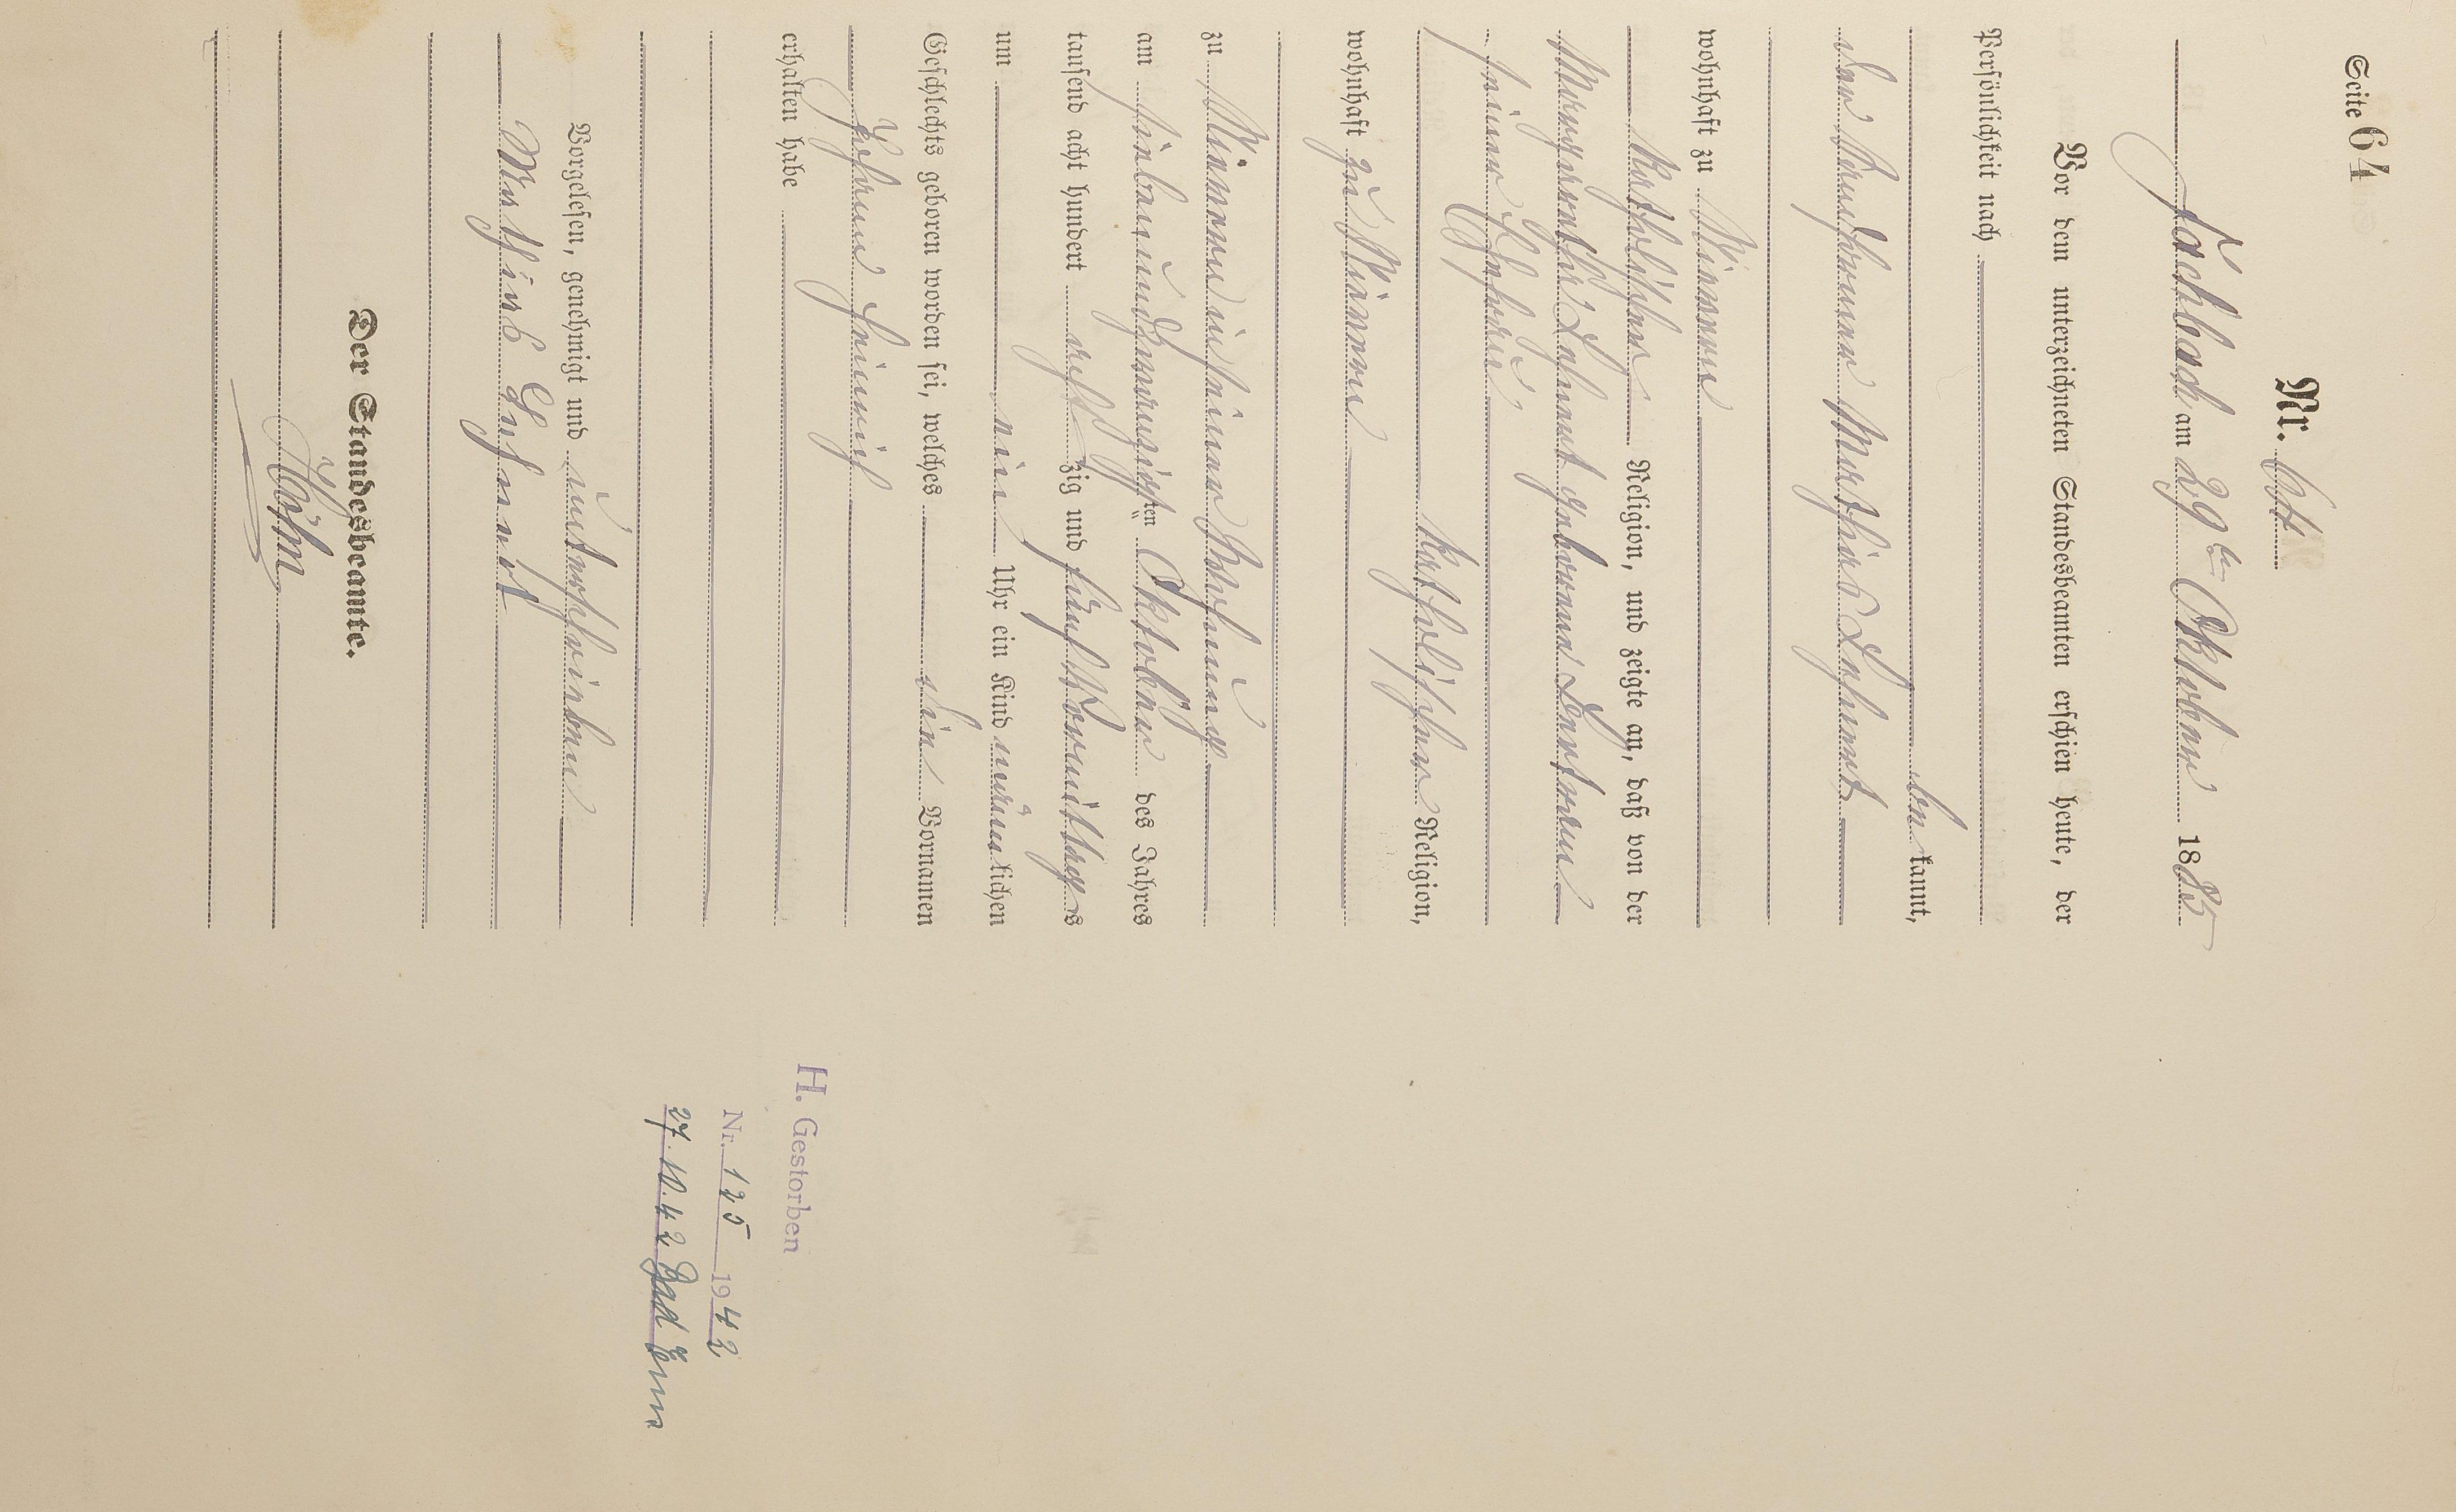 Seite 64
Nr. 64
Fachbach am 29ten Oktober 1885
Vor dem unterzeichneten Standesbeamten erschien heute, der
Persönlichkeit nach
be kannt,
der Mathias Lehnert
wohnhaft zu Miellen
katholischer Religion, und zeigte an, daß von der
Margaretha Lehnert geborene
seiner Ehefrau
katholischer Religion,
wohnhaft zu Miellen
zu Miellen in seiner Wohnung
am siebenundzwanzigsten ten Oktober des Jahres
tausend acht hundert acht zig und fünf Vormittags
um ein Uhr ein Kind männ lichen
Geschlechts geboren worden sei, welches die Vornamen
Johann Heinrich
erhalten habe
Vorgelesen, genehmigt und unterschrieben
Mathias Lehnert
Der Standesbeamte.
Höhn
H. Gestorben
Nr. 125 1942
27.10.42 Bad Ems